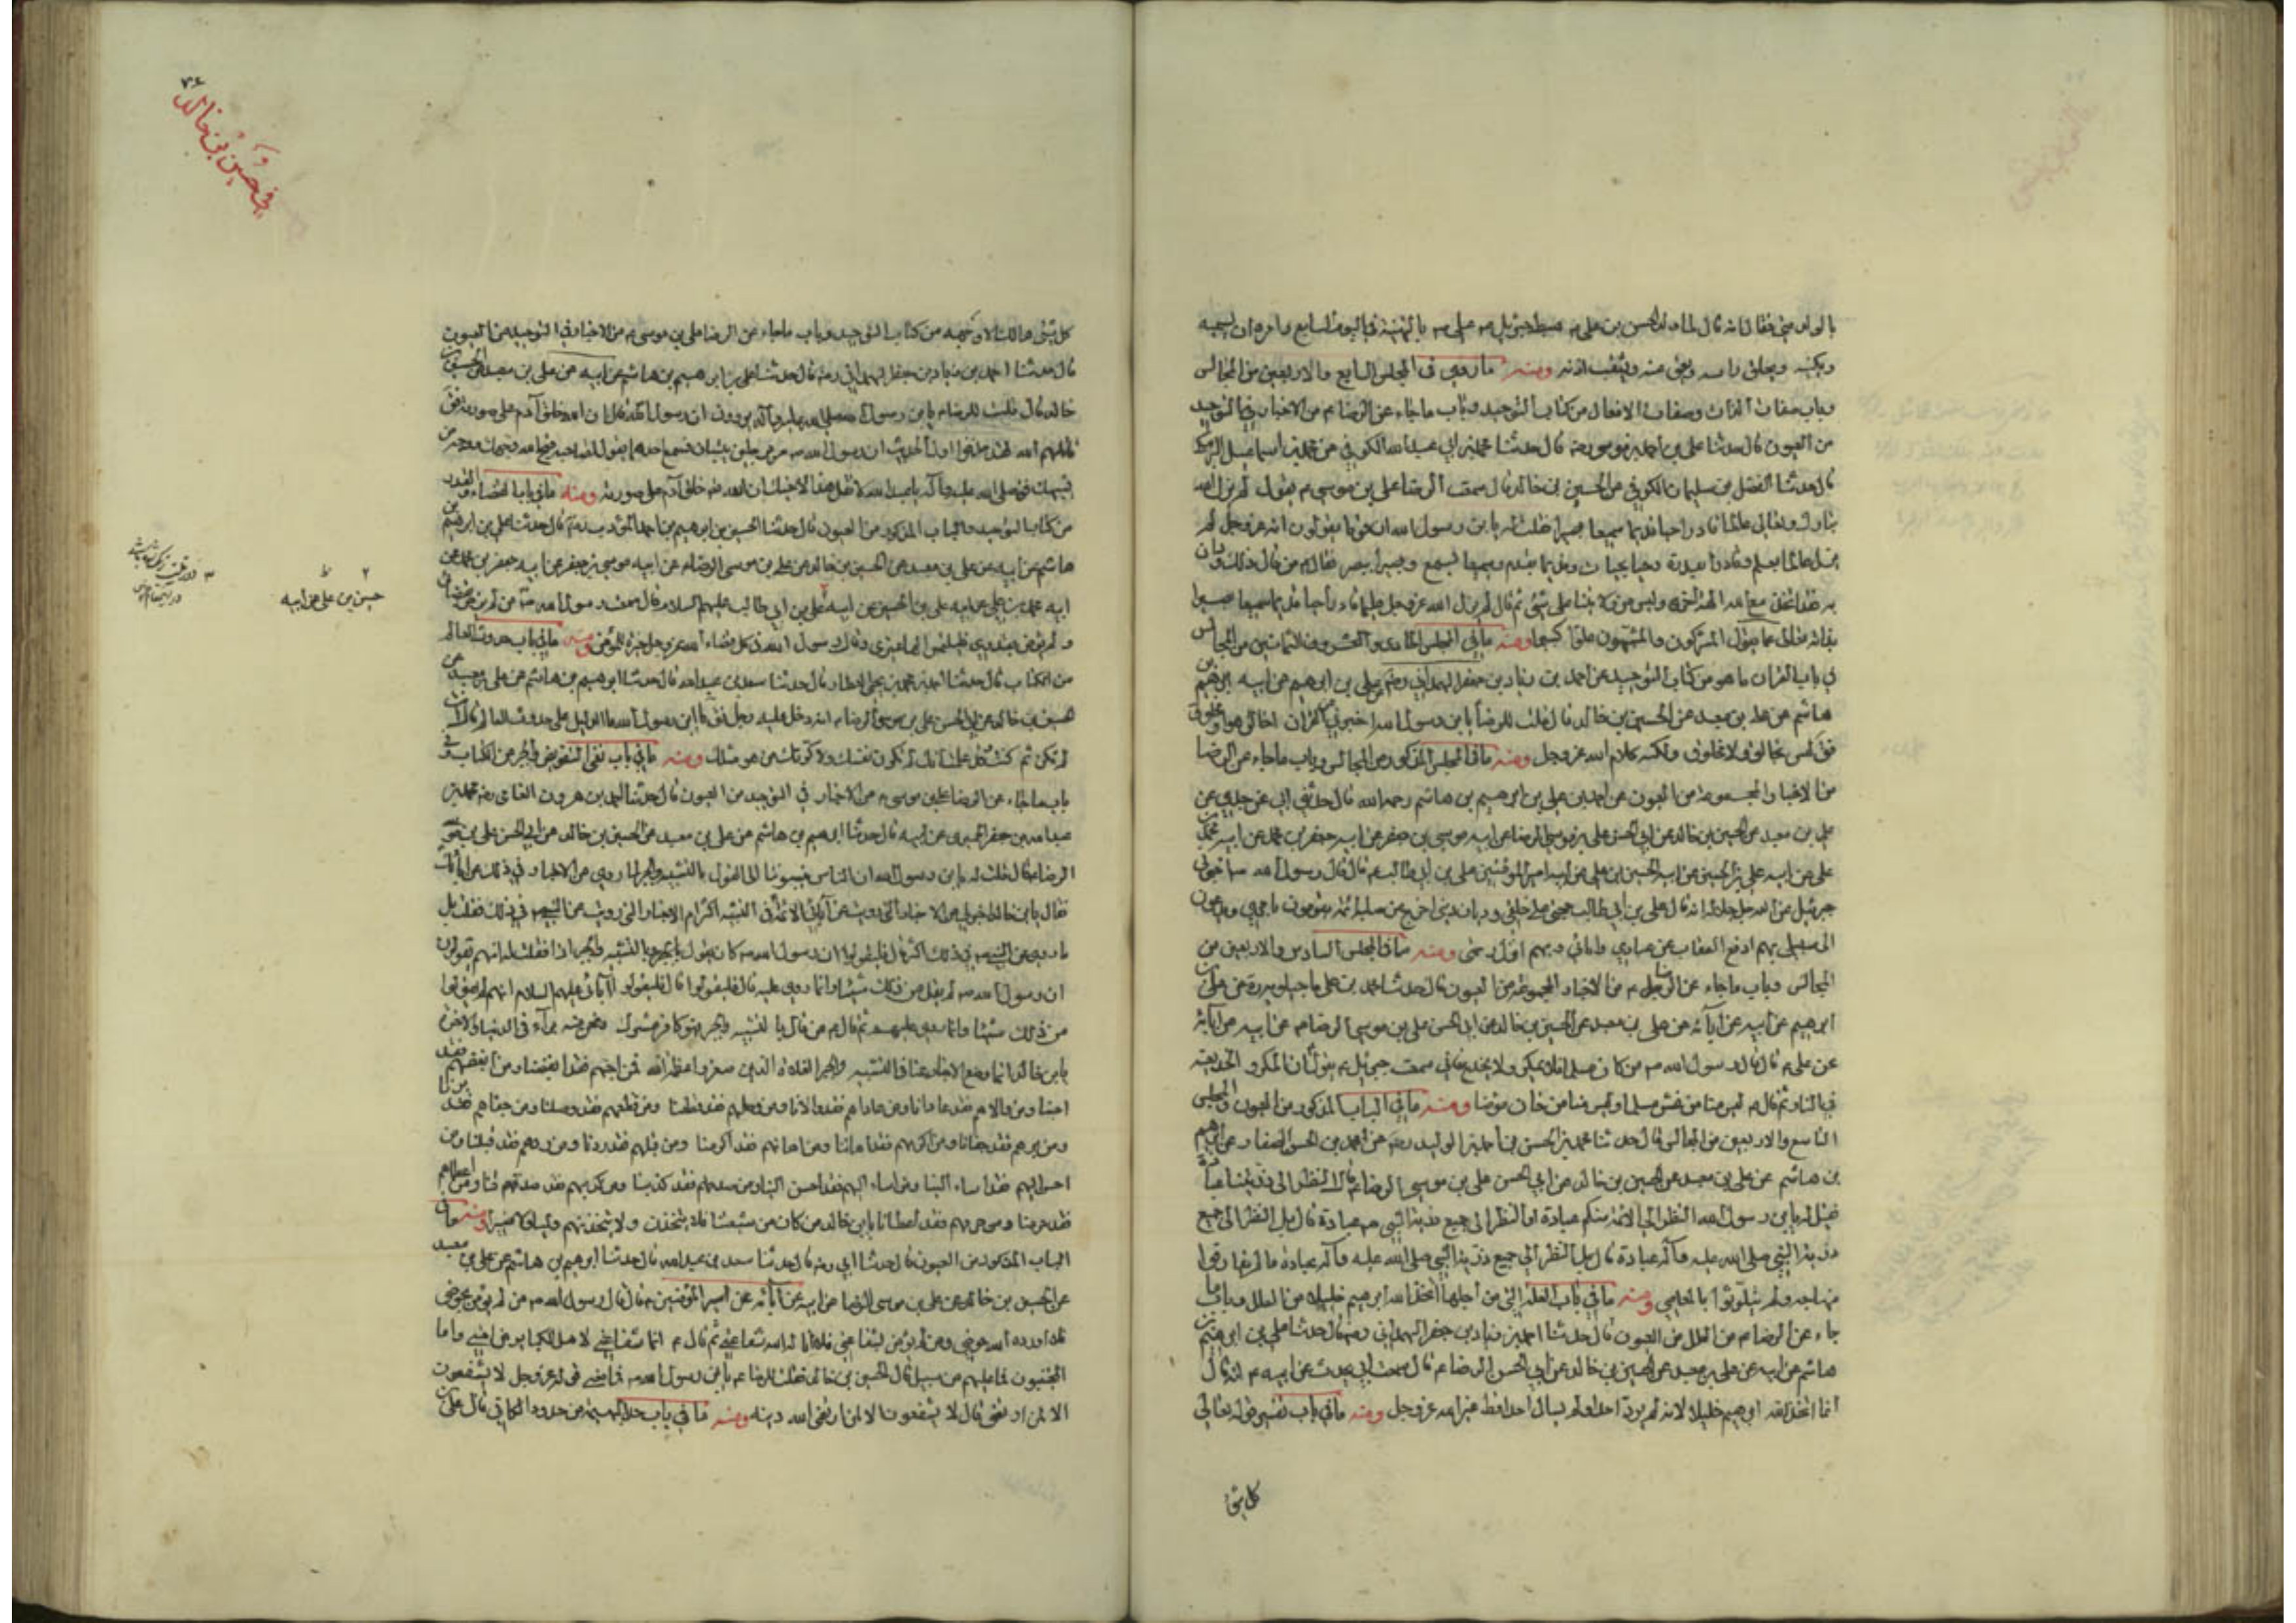 بالولد مني فقال انه قال لما ولد الحسن بن علي م هبط جبرئيل م على ص بالتهنية في اليوم السابع وامره ان يسميه
ويكنيه ويحلق راسه ويعق عنه ويثقب اذنه ومنه ما روى في المجلس السابع والاربعين من المجالس
وباب صفات الذات وصفات الافعال من كتاب التوحيد وباب ما جاء عن الرضا م من الاخبار في التوحيد
من العيون قال حدثنا علي بن احمد بن موسى رضه قال حدثنا محمد بن ابي عبد الله الكوفي عن محمد بن اسماعيل البرمكي
قال حدثنا الفضل بن سليمان الكوفي عن الحسين بن خالد قال سمعت الرضا علي بن موسى م يقول لم يزل الله
تبارك وتعالى عالما قادرا حيا قديما سميعا بصيرا فقلت له يا بن رسول الله ان قوما يقولون انه عز وجل لم
يزل عالما بعلم وقادرا بقدرة وحيا بحيات وقديما بقدم وسميعا بسمع وبصيرا ببصر فقال م من قال ذلك ودان
به فقد اتخذ مع الله الهة اخرى وليس من ولايتنا على شئ ثم قال لم يزل الله عز وجل عليما قادرا حيا قديما سميعا بصيرا
بذاته تعالى عما يقول المشركون والمشبهون علوا كبيرا ومنه ما في المجلس الحادي والعشرون والثمانين من المجالس
في باب القران ما هو من كتاب التوحيد عن احمد بن زياد بن جعفر الهمداني رضه عن علي بن ابرهيم عن ابيه ابرهيم بن
هاشم عن علي بن معبد عن الحسين بن خالد قال قلت للرضا يا بن رسول الله اخبرني عن القران اخالق هو او مخلوق
فق ليس بخالق ولا مخلوق ولكنه كلام الله عز وجل ومنه ما في المجلس المذكور من المجالس وباب ما جاء عن الرضا
من الاخبار المجموعة من العيون عن احمد بن علي بن ابرهيم بن هاشم رحمه الله قال حدثني ابي عن جدي عن
علي بن معبد عن الحسين بن خالد عن ابي الحسن علي بن موسى الرضا عن ابيه موسى بن جعفر عن ابيه جعفر بن محمد عن ابيه محمد بن
علي عن ابيه علي بن الحسين عن ابيه الحسين بن علي عن ابيه امير المؤمنين علي بن ابي طالب م قال قال رسول الله ص اخبرني
جبرئيل عن الله جل جلاله انه قال علي بن ابي طالب حجتي على خلقي وديان ديني اخرج من صلبه ائمة يقومون بامري ويدعون
الى سبيلي بهم ادفع العذاب عن عبادي وامائي وبهم انزل رحمتي ومنه ما في المجلس السادس والاربعين من
المجالس وباب ما جاء عن الرضا م من الاخبار المجموعة من العيون قال حدثنا محمد بن علي ماجيلويه رضه عن علي بن
ابرهيم عن ابيه عن علي بن معبد عن الحسين بن خالد عن ابي الحسن علي بن موسى الرضا م عن ابيه عن آبائه
عن علي م قال قال رسول الله ص من كان مسلما فلا يمكر ولا يخدع فاني سمعت جبرئيل م يقول ان المكر والخديعة
في النار ثم قال م ليس منا من غش مسلما وليس منا من خان مؤمنا ومنه ما في الباب المذكور من العيون والمجلس
التاسع والاربعين من المجالس قال حدثنا محمد بن الحسن بن احمد بن الوليد رضه عن محمد بن الحسن الصفار عن ابرهيم
بن هاشم عن علي بن معبد عن الحسين بن خالد عن ابي الحسن علي بن موسى الرضا م قال النظر الى ذريتنا عبادة
فقيل له يا بن رسول الله النظر الى الائمة منكم عبادة او النظر الى جميع ذرية النبي ص عبادة قال بل النظر الى جميع
ذرية النبي صلى الله عليه وآله عبادة ما لم يفارقوا
منهاجه ولم يتلوثوا بالمعاصي ومنه ما في باب العلة التي من اجلها اتخذ الله ابرهيم خليلا من العلل وباب ما
جاء عن الرضا م من العلل من العيون قال حدثنا احمد بن زياد بن جعفر الهمداني رضه قال حدثنا علي بن ابرهيم بن
هاشم عن ابيه عن علي بن معبد عن الحسين بن خالد عن ابي الحسن الرضا م قال سمعت ابي يحدث عن ابيه م انه قال
انما اتخذ الله ابرهيم خليلا لانه لم يرد احدا ولم يسال احدا قط غير الله عز وجل ومنه ما في باب تفسير قوله تعالى
كل شئ
٧٤
في حسين بن خالد
كل شئ هالك الا وجهه من كتاب التوحيد وباب ما جاء عن الرضا علي بن موسى م من الاخبار في التوحيد من العيون
قال حدثنا احمد بن زياد بن جعفر الهمداني رضه قال حدثنا علي بن ابرهيم بن هاشم عن ابيه عن علي بن معبد عن الحسين بن
خالد قال قلت للرضا م يا بن رسول الله صلى الله عليه وآله يروون ان رسول الله قال ان الله خلق آدم على صورته فق
قاتلهم الله لقد حذفوا اول الحديث ان رسول الله ص مر برجلين يتسابان فسمع احدهما يقول لصاحبه قبح الله وجهك ووجه من
يشبهك فق صلى الله عليه وآله يا عبد الله لا تقل هذا لاخيك فان الله عز خلق آدم على صورته ومنه ما في باب القضاء والقدر
من كتاب التوحيد والباب المذكور من العيون قال حدثنا الحسين بن ابرهيم بن احمد المؤدب رضه قال حدثنا علي بن ابرهيم بن
هاشم عن ابيه عن علي بن معبد عن الحسين بن خالد عن علي بن موسى الرضا م عن ابيه موسى بن جعفر عن ابيه جعفر بن محمد عن
ابيه محمد بن علي عن ابيه علي بن الحسين عن ابيه علي بن ابي طالب عليهم السلام قال سمعت رسول الله ص من لم يرض بقضائي
و لم يؤمن بقدري فليلتمس الها غيري وقال رسول الله ص في كل قضاء الله عز وجل خيرة للمؤمن ومنه ما في باب حدوث العالم
من الكتاب قال حدثنا احمد بن محمد بن يحيى العطار قال حدثنا سعد بن عبد الله قال حدثنا ابرهيم بن هاشم عن علي بن معبد عن
حسين بن خالد عن ابي الحسن علي بن موسى الرضا م انه دخل عليه رجل فق يا بن رسول الله ما الدليل على حدوث العالم قال انت
لم تكن ثم كنت وقد علمت انك لم تكون نفسك ولا كونك من هو مثلك ومنه ما في باب نفي التشبيه والجبر من الكتاب وفي
باب ما جاء عن الرضا علي بن موسى م من الاخبار في التوحيد من العيون قال حدثنا احمد بن هرون الفامي رضه محمد بن
عبد الله بن جعفر الحميري عن ابيه قال حدثنا ابرهيم بن هاشم عن علي بن معبد عن الحسين بن خالد عن ابي الحسن علي بن موسى
الرضا م قال قلت له يا بن رسول الله ان الناس ينسبونا الى القول بالتشبيه والجبر لما روى من الاخبار في ذلك عن آبائك
فقال يا بن خالد اخبرني عن الاخبار التي رويت عن آبائي الائمة في التشبيه اكثر ام الاخبار التي رويت عن النبي ص في ذلك فقلت بل
ما روى عن النبي ص في ذلك اكثر قال فليقولوا ان رسول الله ص كان يقول بالتشبيه والجبر اذا فقلت له انهم يقولون
ان رسول الله ص لم يقل من ذلك شيئا وانما روى عليه قال فليقولوا في آبائي عليهم السلام انهم لم يقولوا
من ذلك شيئا وانما روى عليهم ثم قال م من قال بالتشبيه والجبر فهو كافر مشرك ونحن منه براء في الدنيا والاخرة
يا بن خالد انما وضع الاخبار عنا في التشبيه والجبر الغلاة الذين صغروا عظمة الله فمن احبهم فقد ابغضنا ومن ابغضهم فقد
احبنا ومن والاهم فقد عادانا ومن عاداهم فقد والانا ومن وصلهم فقد قطعنا ومن قطعهم فقد وصلنا ومن جفاهم فقد برنا
ومن برهم فقد جفانا ومن اكرمهم فقد اهاننا ومن اهانهم فقد اكرمنا ومن قبلهم فقد ردنا ومن ردهم فقد قبلنا ومن
احسن اليهم فقد اساء الينا ومن اساء اليهم فقد احسن الينا ومن صدقهم فقد كذبنا ومن كذبهم فقد صدقنا ومن اعطاهم
فقد حرمنا ومن حرمهم فقد اعطانا يا بن خالد من كان من شيعتنا فلا يتخذن منهم وليا ولا نصيرا ومنه ما في
الباب المذكور من العيون قال حدثنا ابي رضه قال حدثنا سعد بن عبد الله قال حدثنا ابرهيم بن هاشم عن علي بن معبد
عن الحسين بن خالد عن علي بن موسى الرضا عن ابيه عن آبائه عن امير المؤمنين م قال قال رسول الله ص من لم يؤمن بحوضي
فلا اورده الله حوضي ومن لم يؤمن بشفاعتي فلا انا له الله شفاعتي ثم قال م انما شفاعتي لاهل الكباير من امتي واما
المحسنون فما عليهم من سبيل قال الحسين بن خالد فقلت للرضا م يا بن رسول الله ص فما معنى قول الله عز وجل لا يشفعون
الا لمن ارتضى قال لا يشفعون الا لمن ارتضى الله دينه ومنه ما في باب من حدود الكافي قال علي بن
حسين بن علي عن ابيه